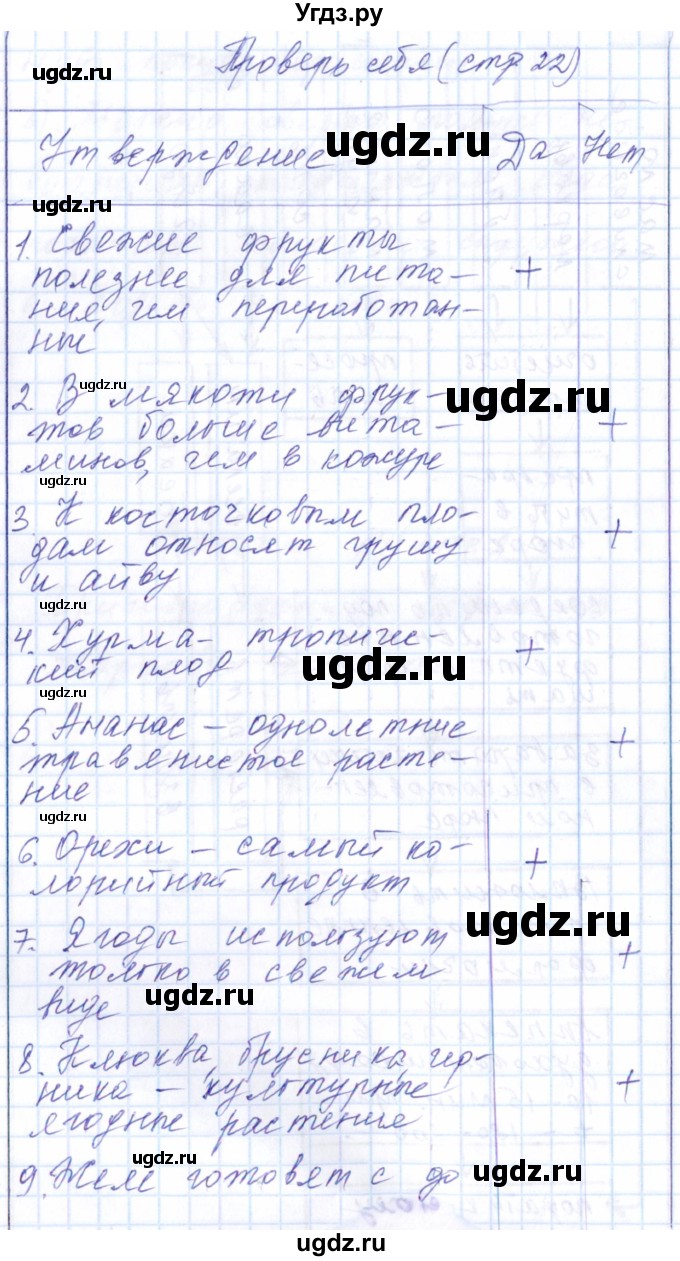 Угдз.ру
ugdz.ru
Проверь себя (стр 22)
Утверждение ugdz.ru Да Нет
ugdz.ru
1. Свежие фрукты
полезнее для пита- +
ния, чем переработан-
ные
ugdz.ru
2. В мякоти фрук- ugdz.ru
тов больше вита- +
минов, чем в кожуре
ugdz.ru
3 К косточковым пло-
дам относят грушу +
и айву
ugdz.ru
4. Хурма - тропичес-
кий плод ugdz.ru +
ugdz.ru
5. Ананас - однолетние
травянистое расте- +
ние
ugdz.ru
6. Орехи - самый ка-
лорийный продукт +
7. Ягоды используют ugdz.ru
только в свежем +
виде ugdz.ru
8. Клюква, брусника, чер-
ника - культурные +
ягодные растение
ugdz.ru
9. Желе готовят с до
ugdz.ru
ugdz.ru